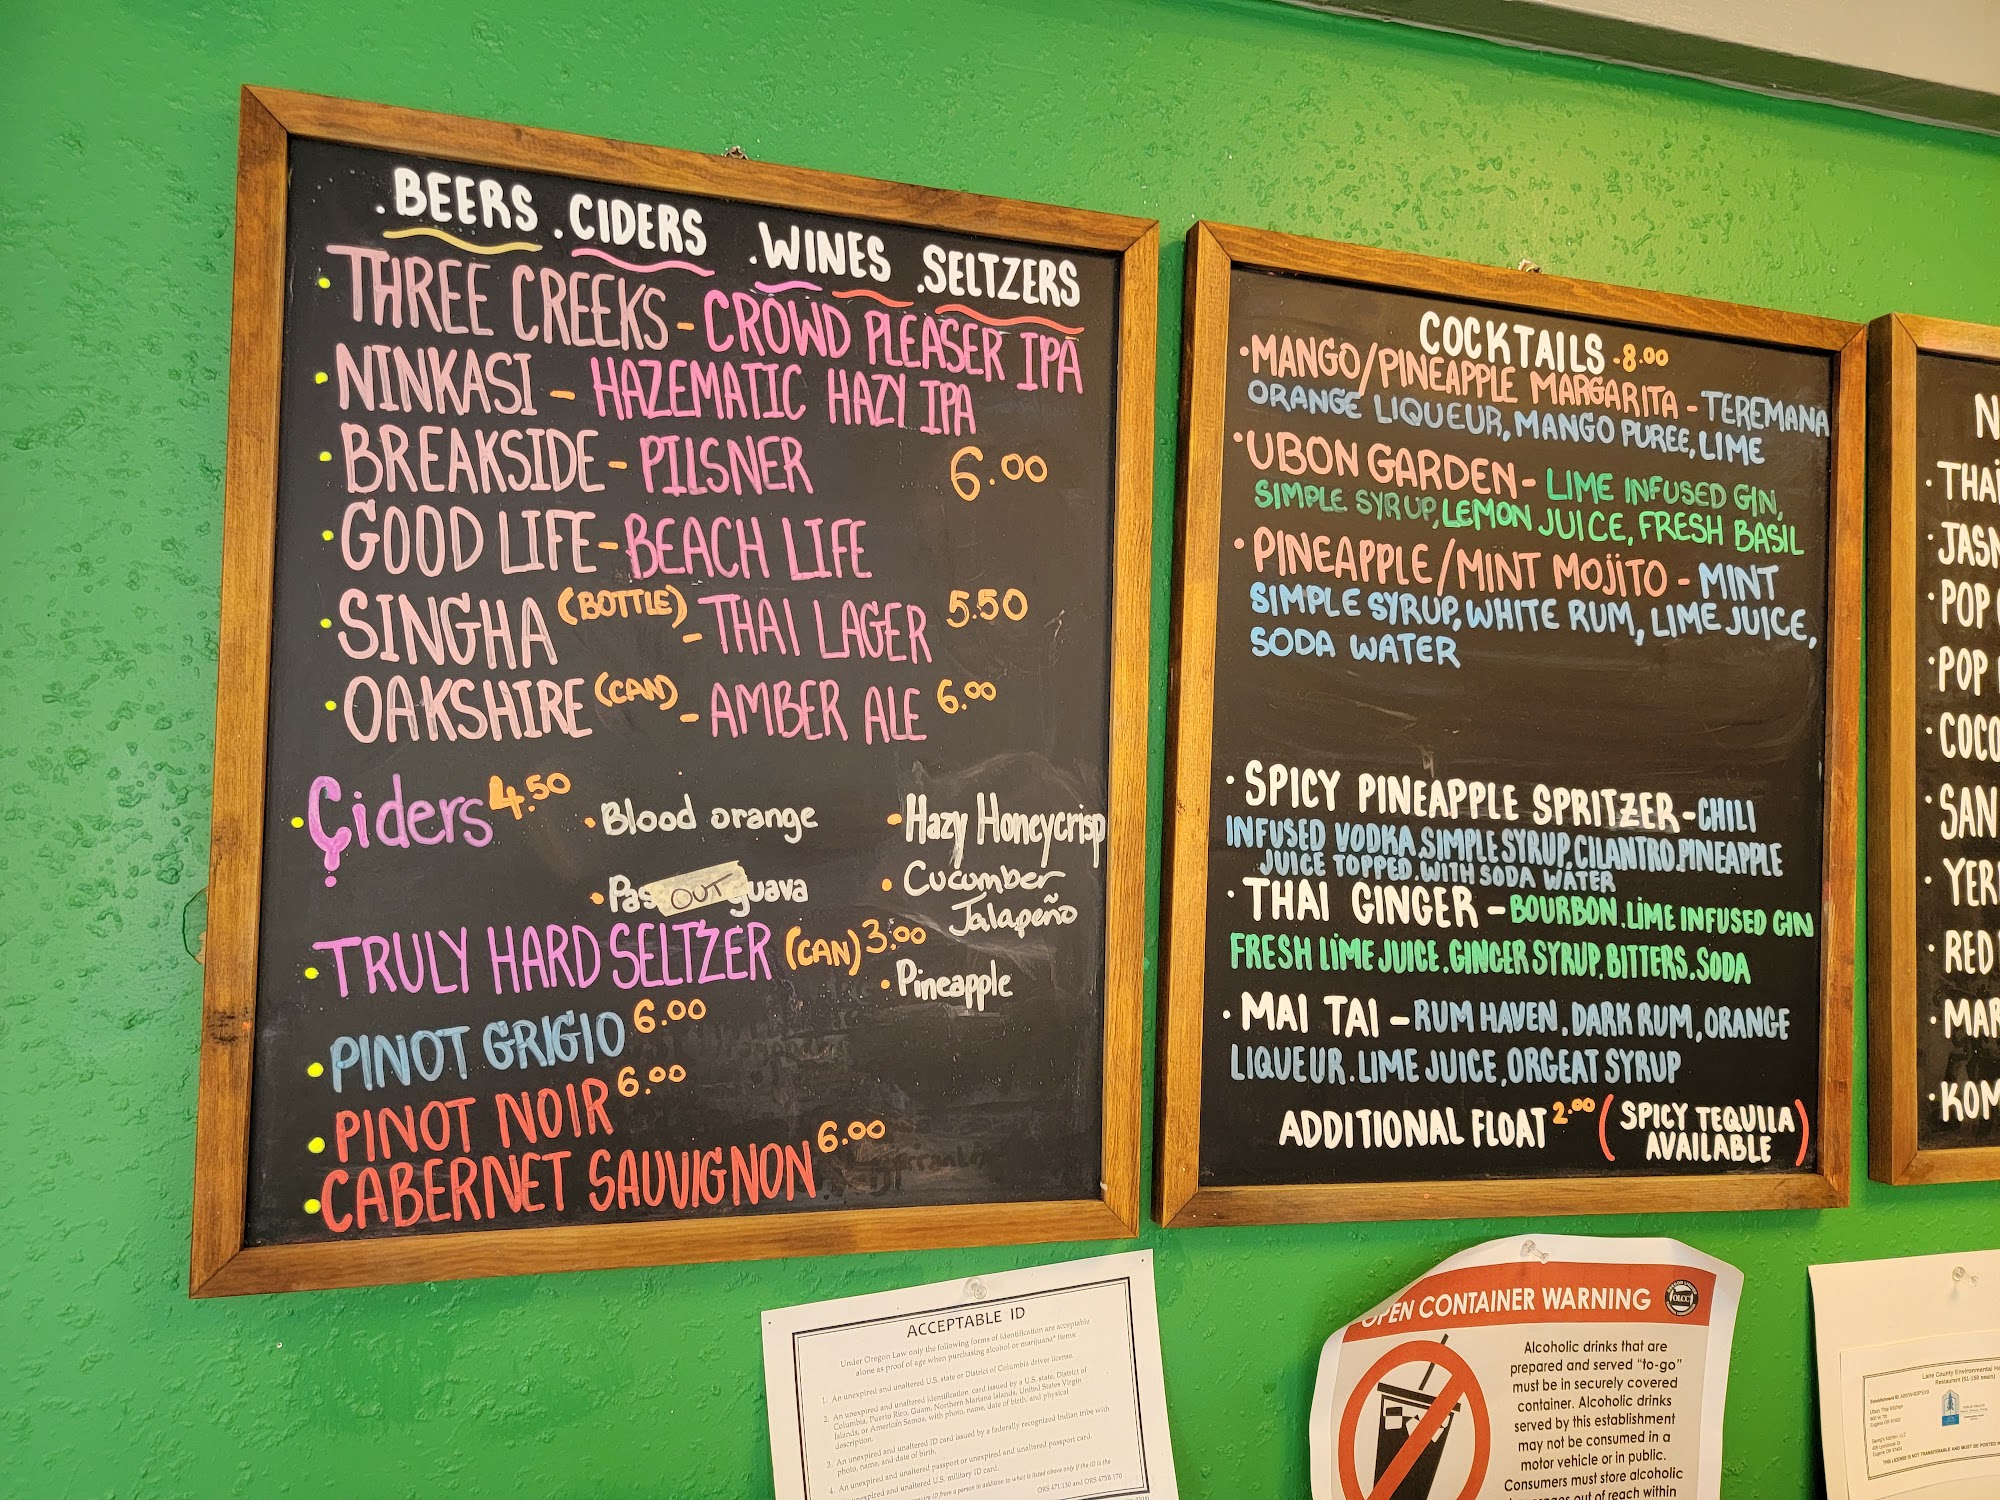 .BEERS .CIDERS .WINES .SELTZERS
• THREE CREEKS - CROWD PLEASER IPA
• NINKASI - HAZEMATIC HAZY IPA
• BREAKSIDE - PILSNER 6.00
• GOOD LIFE - BEACH LIFE
• SINGHA (BOTTLE) - THAI LAGER 5.50
• OAKSHIRE (CAN) - AMBER ALE 6.00
• Ciders 4.50 • Blood orange • Hazy Honeycrisp
• Pas OUT guava • Cucumber
Jalapeño
• TRULY HARD SELTZER (CAN) 3.00 • Pineapple
• PINOT GRIGIO 6.00
• PINOT NOIR 6.00
• CABERNET SAUVIGNON 6.00
COCKTAILS - 8.00
• MANGO/PINEAPPLE MARGARITA - TEREMANA
ORANGE LIQUEUR, MANGO PUREE, LIME
• UBON GARDEN - LIME INFUSED GIN,
SIMPLE SYRUP, LEMON JUICE, FRESH BASIL
• PINEAPPLE/MINT MOJITO - MINT
SIMPLE SYRUP, WHITE RUM, LIME JUICE,
SODA WATER
• SPICY PINEAPPLE SPRITZER - CHILI
INFUSED VODKA. SIMPLE SYRUP. CILANTRO. PINEAPPLE
JUICE TOPPED. WITH SODA WATER
• THAI GINGER - BOURBON. LIME INFUSED GIN
FRESH LIME JUICE. GINGER SYRUP. BITTERS. SODA
• MAI TAI - RUM HAVEN. DARK RUM, ORANGE
LIQUEUR. LIME JUICE, ORGEAT SYRUP
ADDITIONAL FLOAT 2.00 (SPICY TEQUILA
AVAILABLE)
N
• THAI
• JASM
• POP
• POP
• COCO
• SAN
• YER
• RED
• MAR
• KOM
ACCEPTABLE ID
Under Oregon Law only the following forms of identification are acceptable
alone as proof of age when purchasing alcohol or marijuana* items:
1. An unexpired and unaltered U.S. state or District of Columbia driver license.
2. An unexpired and unaltered identification card issued by a U.S. state, District of
Columbia, Puerto Rico, Guam, Northern Mariana Islands, United States Virgin
Islands, or American Samoa, with photo, name, date of birth, and physical
description.
3. An unexpired and unaltered ID card issued by a federally recognized Indian tribe with
photo, name, and date of birth.
4. An unexpired and unaltered passport or unexpired and unaltered passport card.
unexpired and unaltered U.S. military ID card.
ORS 471.130 and ORS 475B.170
OPEN CONTAINER WARNING
OLCC
Alcoholic drinks that are
prepared and served "to-go"
must be in securely covered
container. Alcoholic drinks
served by this establishment
may not be consumed in a
motor vehicle or in public.
Consumers must store alcoholic
out of reach within
Lane County Environmental He
Restaurant (51-150 seats)
Ubon Thai Kitchen
Eugene OR
THIS LICENSE IS NOT TRANSFERABLE AND MUST BE POSTED IN